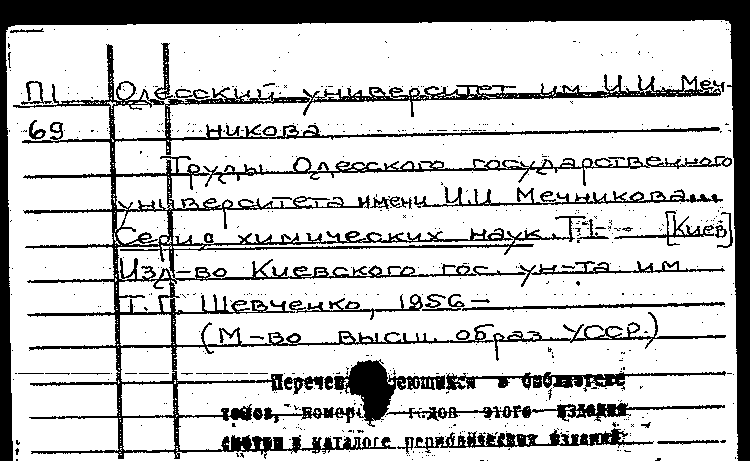 П1 Одесский университет им И.И. Меч-
69 никова
Труды Одесского государственного
университета имени И.И Мечникова...
Серия химических наук. Т1- [Киев]
Изд-во Киевского гос. ун-та им
Т.Г. Шевченко, 1956-
(М-во высш. образ УССР.)
Перечен еющихся в библиотеке
томов, номер годов этого издания
смотри в каталоге периодических изданий